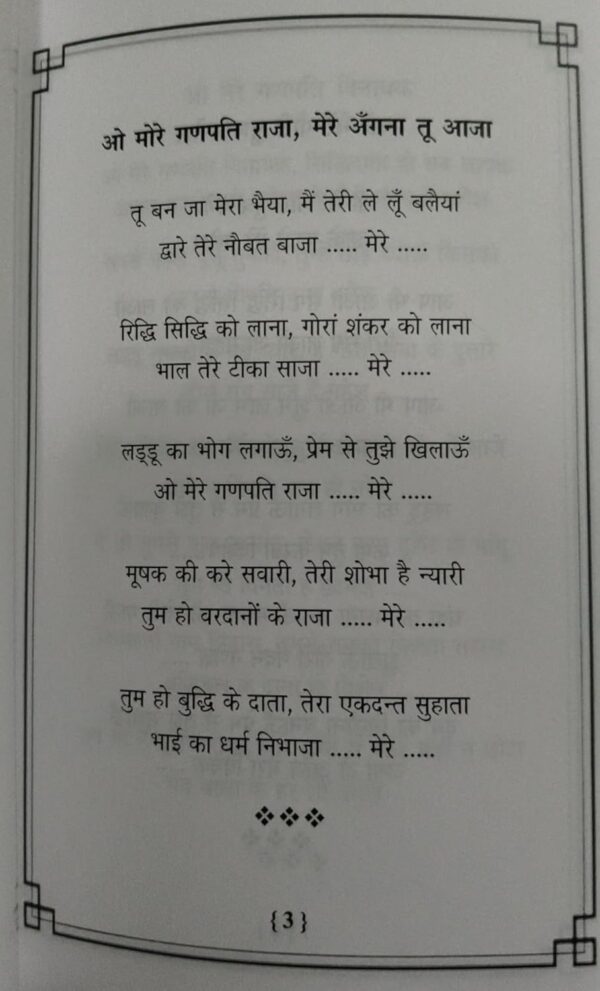 ओ मोरे गणपति राजा, मेरे अँगना तू आजा
तू बन जा मेरा भैया, मैं तेरी ले लूँ बलैयां
द्वारे तेरे नौबत बाजा ..... मेरे .....
रिद्धि सिद्धि को लाना, गोरां शंकर को लाना
भाल तेरे टीका साजा ..... मेरे .....
लड्डू का भोग लगाऊँ, प्रेम से तुझे खिलाऊँ
ओ मेरे गणपति राजा ..... मेरे .....
मूषक की करे सवारी, तेरी शोभा है न्यारी
तुम हो वरदानों के राजा ..... मेरे .....
तुम हो बुद्धि के दाता, तेरा एकदन्त सुहाता
भाई का धर्म निभाजा ..... मेरे .....
{3}